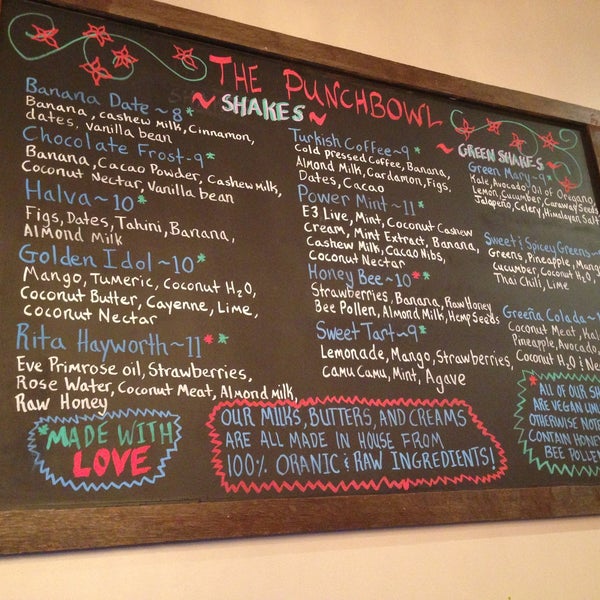 THE PUNCHBOWL
~ SHAKES ~
Banana Date ~ 8*
Banana, cashew Milk, Cinnamon,
dates, Vanilla bean
Chocolate Frost - 9*
Banana, Cacao Powder, Cashew Milk,
Coconut Nectar, Vanilla bean
Halva ~ 10*
Figs, Dates, Tahini, Banana,
Almond Milk
Golden Idol ~ 10*
Mango, Tumeric, Coconut H2O,
Coconut Butter, Cayenne, Lime,
Coconut Nectar
Rita Hayworth ~ 11**
Eve Primrose oil, Strawberries,
Rose Water, Coconut Meat, Almond milk,
Raw Honey
*MADE WITH
LOVE
Turkish Coffee ~ 9*
Cold pressed Coffee, Banana,
Almond Milk, Cardamon, Figs,
Dates, Cacao
Power Mint ~ 11*
E3 Live, Mint, Coconut Cashew
Cream, Mint Extract, Banana,
Cashew Milk, Cacao Nibs,
Coconut Nectar
Honey Bee ~ 10**
Strawberries, Banana, Raw Honey
Bee Pollen, Almond Milk, Hemp Seeds
Sweet Tart ~ 9*
Lemonade, Mango, Strawberries,
Camu Camu, Mint, Agave
OUR MILKS, BUTTERS, AND CREAMS
ARE ALL MADE IN HOUSE FROM
100% ORANIC & RAW INGREDIENTS!
~ GREEN SHAKES ~
Green Mary ~ 9*
Kale, Avocado, Oil of Oregano,
Lemon, Cucumber, Caraway Seeds
Jalapeño, Celery, Himalayan Salt
Sweet & Spicey Greens
Greens, Pineapple,
Cucumber, Coconut H2O,
Thai Chili, Lime
Greeña Colada
Coconut Meat,
Pineapple, Avocado,
Coconut H2O &
* ALL OF OUR
ARE VEGAN
OTHERWISE
CONTAIN HONEY
BEE POLLEN